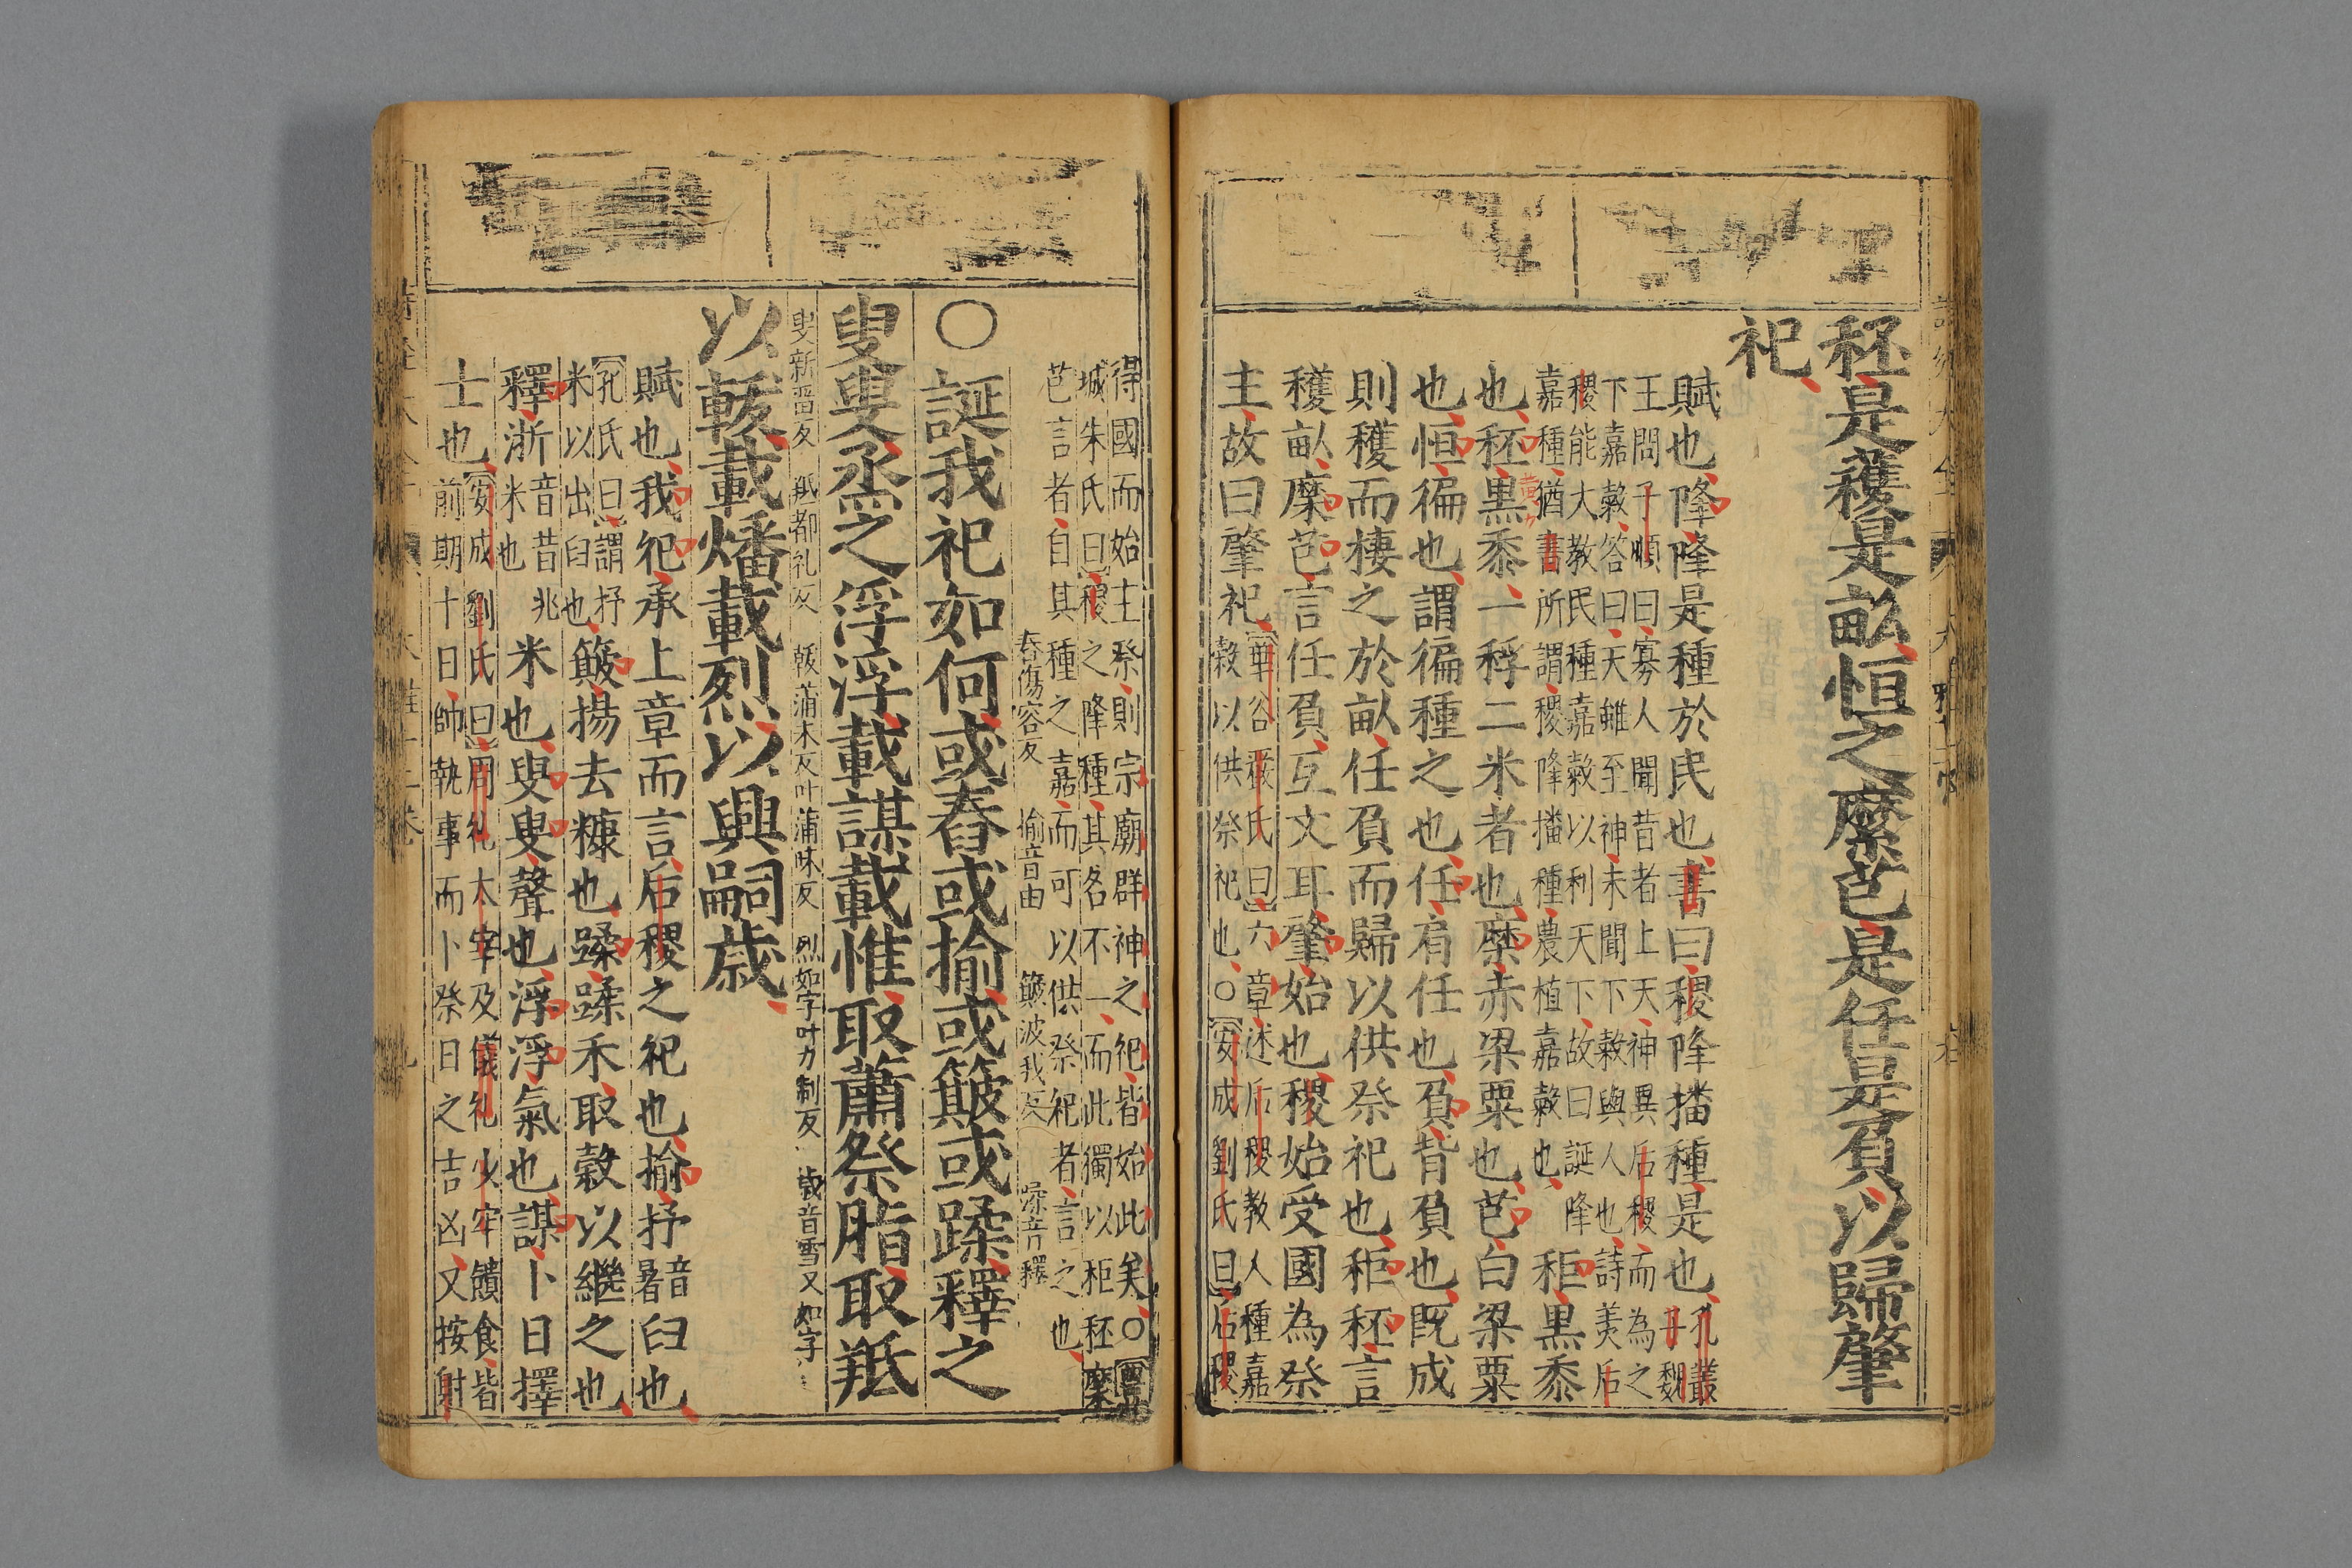 秠是穫是畝恒之穈芑是任是負以歸肇
祀
賦也降降是種於民也書曰稷降播種是也孔叢
子魏
王問子順曰寡人聞昔者上天神異后稷而為之
下嘉穀答曰天雖至神未聞下穀與人也詩美后
稷能大教民種嘉穀以利天下故曰誕降
嘉種猶書所謂稷降播種農植嘉穀也
秬黑黍
也秠黑黍一稃二米者也穈赤粱粟也芑白粱粟
也恒徧也謂徧種之也任肩任也負背負也既成
則穫而棲之於畝任負而歸以供祭祀也秬秠言
穫畝穈芑言任負互文耳肇始也稷始受國為祭
主故曰肇祀
華谷嚴氏曰六章述后稷教人種嘉
穀以供祭祀也○安成劉氏曰后稷
得國而始主祭則宗廟群神之祀皆始此矣○豐
城朱氏曰稷之降種其名不一而此獨以秬秠穈
芑言者自其種之嘉而可以供祭祀者言之也
○誕我祀如何或舂或揄或簸或蹂釋之
舂傷容反 揄音由 簸波我反 蹂音
叟叟烝之浮浮載謀載惟取蕭祭脂取羝
以軷載燔載烈以興嗣歲
叟新畱反 羝都礼反 軷蒲末反叶蒲昧反 烈如字叶力制反 歲音雪又如字
賦也我祀承上章而言后稷之祀也揄抒音暑臼也
孔氏曰謂抒
米以出臼也
簸揚去糠也蹂蹂禾取穀以繼之也
釋淅音昔米也叟叟聲也浮浮氣也謀卜日擇
士也
安成劉氏曰周礼大宰及儀礼少牢饋食皆
前期十日帥執事而卜祭日之吉凶又按射